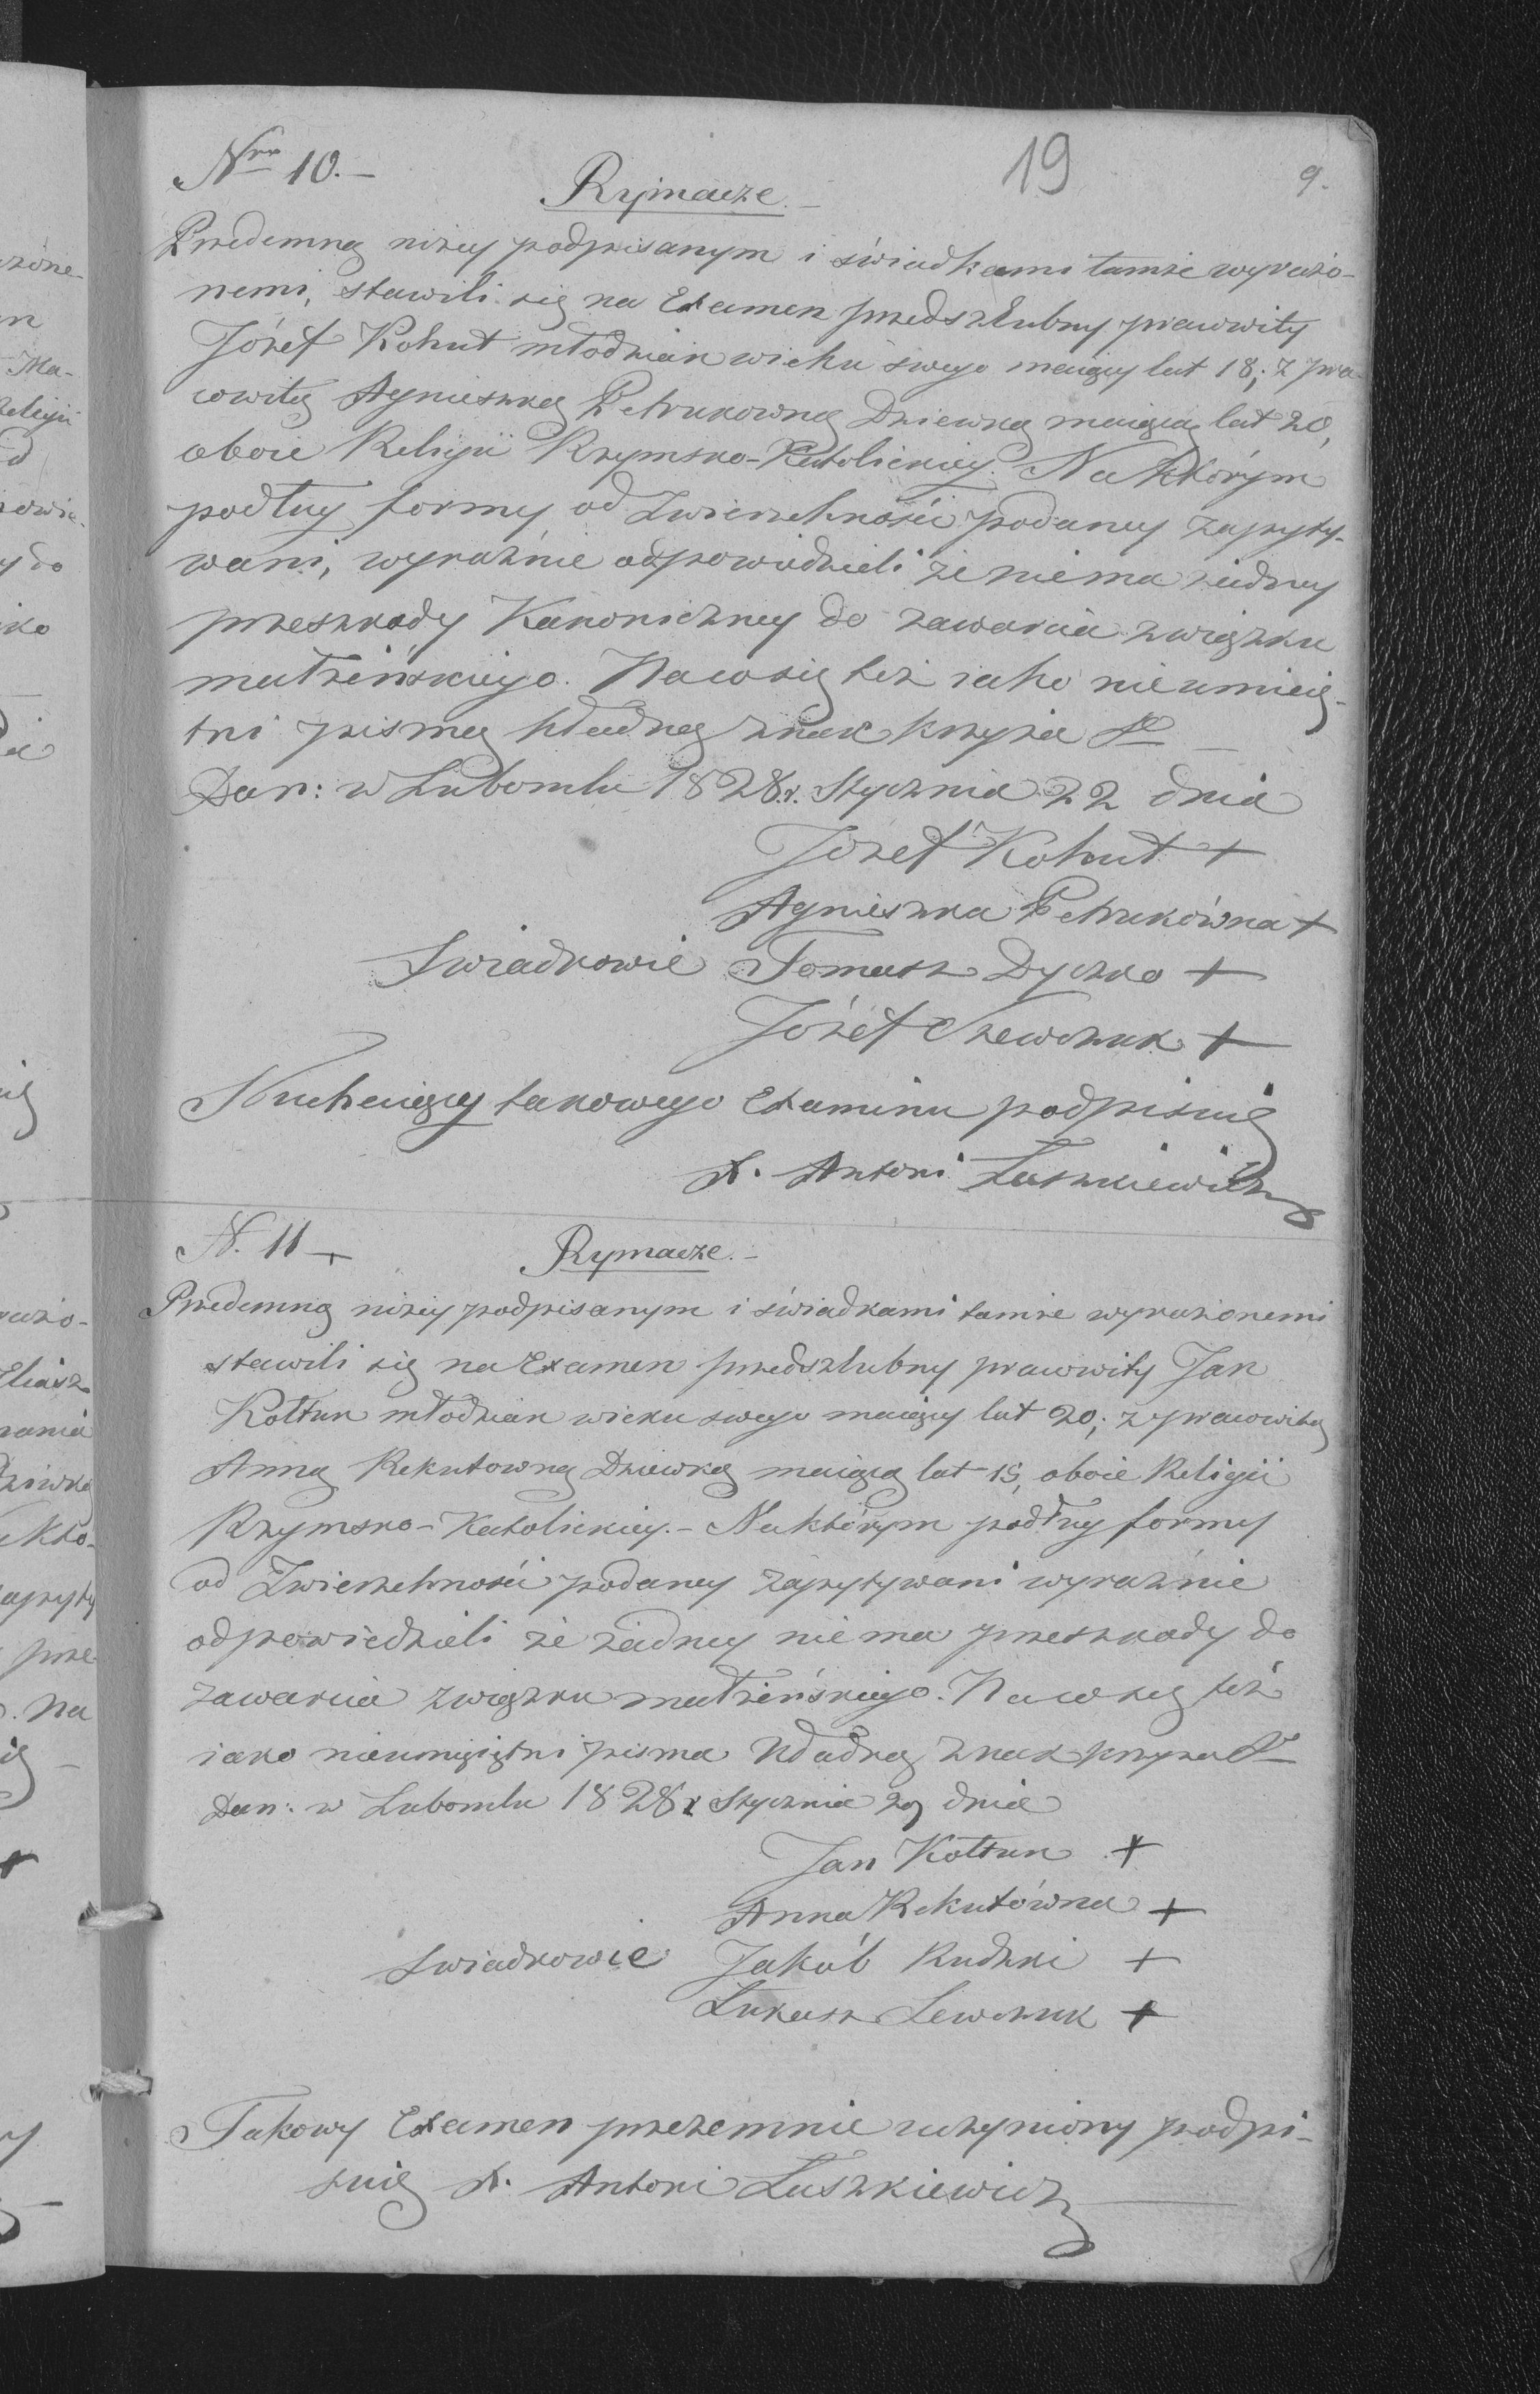 Nro 10.- 19 9.
Rymacze.-
Przedemną niżey podpisanym i świadkami tamże wyrażo-
nemi, stawili się na Examen przedszlubny pracowity
Józef Kohut młodzian wieku swego maiący lat 18; z pra-
cowitą Agnieszką Petrukowną Dziewką maiącą lat 20,
oboie Religii Rzymsko-Katolickiey. Na którym
podług formy od Zwierzchności podaney zapyty-
wani, wyraźnie odpowiedzieli że niema żadney
przeszkody Kanoniczney do zawarcia związku
małżeńskiego. Na co się też iako nieumieię-
tni pismą kładną znak krzyża S
Dan: w Lubomlu 1828.r. Stycznia 22 dnia
Józef Kohut +
Agnieszka Petrukówna +
Swiadkowie Tomasz Dyczko +
Józef Szewczuk +
takowego Examinu podpisuię
X. Antoni Luszkiewicz
N. 11 -
Rymacze.-
Przedemną niżey podpisanym i świadkami tamże wyrażonemi
stawili się na Examen przedszlubny pracowity Jan
Kołtun młodzian wieku swego maiący lat 20; z pracowitą
Anną Rekutowną Dziewką maiącą lat 19, oboie Religii
Rzymsko-Katolickiey.- Na którym podług formy
od Zwierzchności podaney zapytywani wyraźnie
odpowiedzieli że żadney niema przeszkody do
zawarcia związku małżeńskiego. Na co się też
iako nieumieiętni pisma kładną znak krzyża S
Dan: w Lubomlu 1828 r Stycznia 29 dnia
Jan Kołtun +
Anna Rekutówna +
Swiadkowie Jakób Rudzki +
Łukasz Lewczuk +
Takowy Examen przezemnie uczyniony podpi-
suię X. Antoni Luszkiewicz